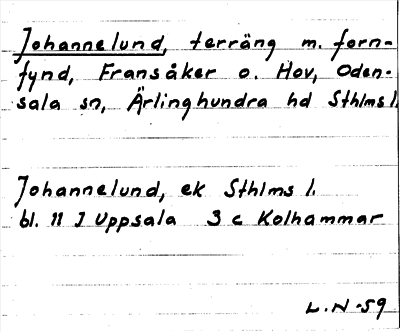 Johannelund, terräng m. forn-
fynd, Fransåker o. Hov, Oden-
sala sn, Ärlinghundra hd Sthlms l.
Johannelund, ek Sthlms l.
bl. 11 I Uppsala 3 c Kolhammar
L.N-59